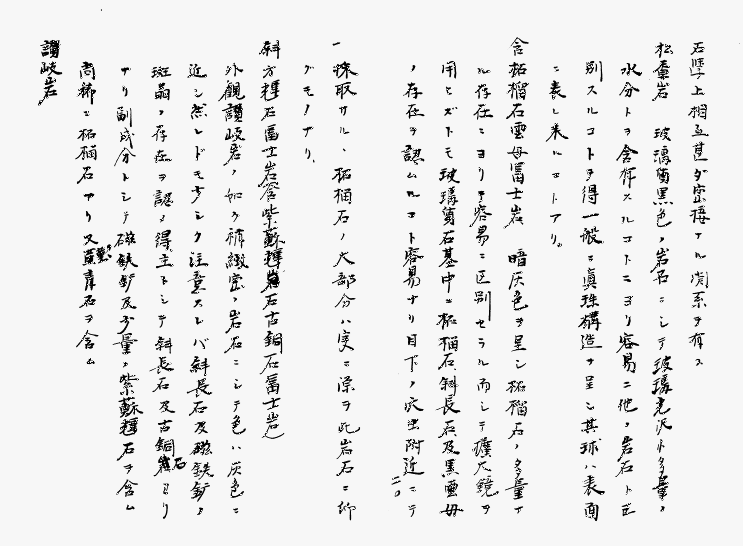 石學上相互甚ダ密接ナル関系ヲ有ス
松脂岩 玻璃質黒色ノ岩石ニシテ玻璃光沢ト多量ノ
水分トヲ含有スルコトニヨリ容易ニ他ノ岩石ト区
別スルコトヲ得一般ニ真珠構造ヲ呈シ其球ハ表面
ニ表レ来ルコトアリ。
含柘榴石雲母富士岩 暗灰色ヲ呈シ柘榴石ノ多量ナ
ル存在ニヨリテ容易ニ区別セラル而シテ擴大鏡ヲ
用ヒズトモ玻璃質石基中ニ柘榴石斜長石及黒雲母
ノ存在ヲ認ムルコト容易ナリ目下ノ穴虫附近ニテ
二〇
採取サル、柘榴石ノ大部分ハ実ニ源ヲ此岩石ニ仰
グモノナリ、
斜方輝石富士岩含紫蘇輝石古銅石富士岩
外観讃岐岩ノ如ク稍緻密ノ岩石ニシテ色ハ灰色ニ
近シ然レドモ少シク注意スレバ斜長石及磁鉄鉱ノ
斑晶ノ存在ヲ認メ得主トシテ斜長石及古銅石ヨリ
ナリ副成分トシテ磁鉄鉱及少量ノ紫蘇輝石ヲ含ム
尚稀ニ柘榴石アリ又菫青石ヲ含ム
讃岐岩